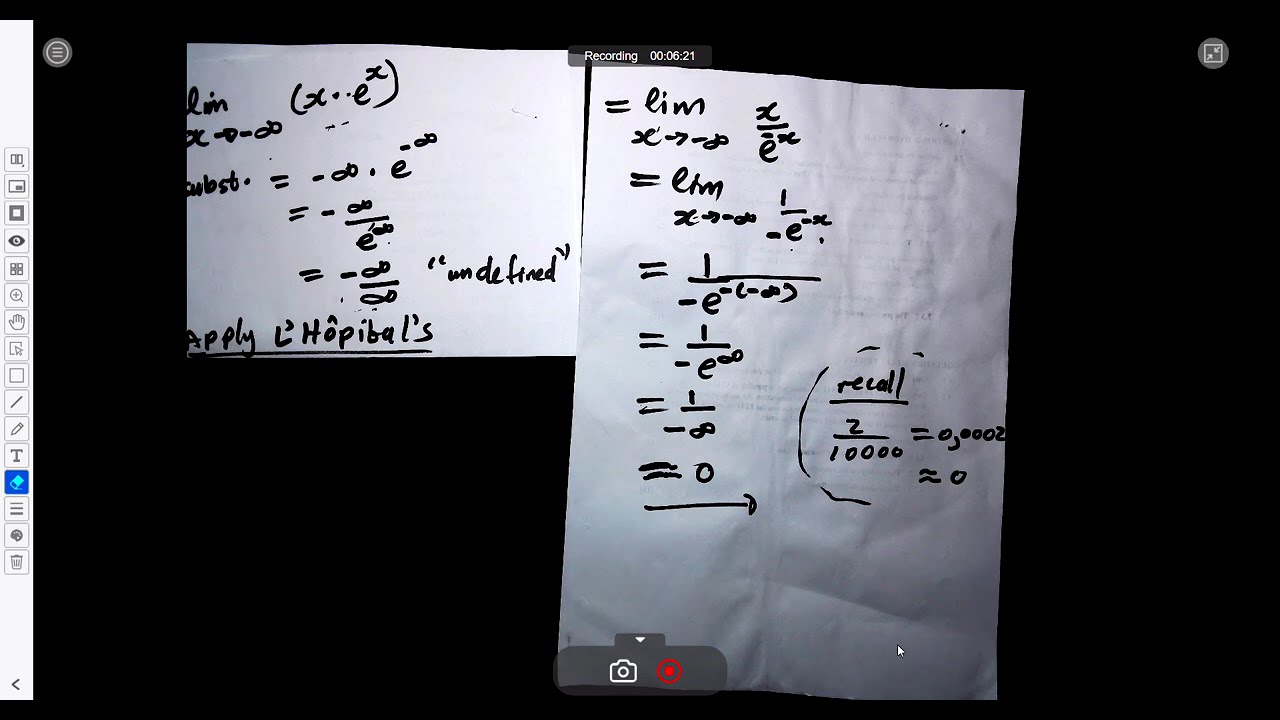 Recording 00:06:21
lim (x··e^x)
x→-∞
subst. = -∞ · e^-∞
= - ∞/e^∞
= -∞/∞ "undefined"
Apply L'Hôpibal's
= lim x/e^-x
x→-∞
= lim 1/-e^-x.
x→-∞
= 1/-e^-(-∞)
= 1/-e^∞
= 1/-∞
= 0
recall
2/10000 = 0,0002
≈ 0
T